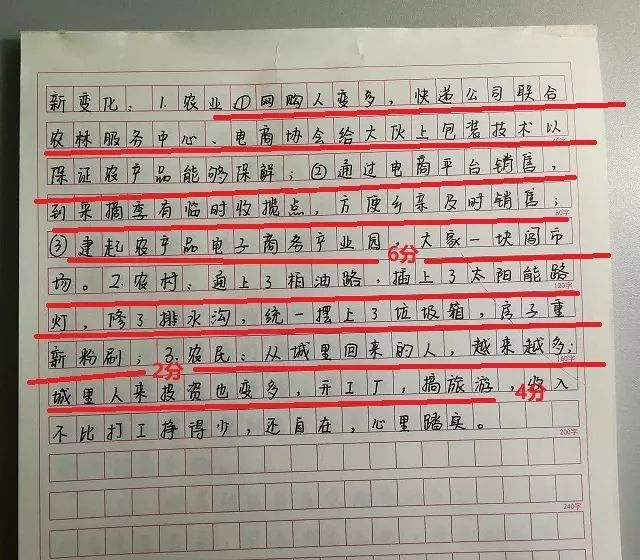 新变化：1.农业①网购人变多，快递公司联合
农林服务中心、电商协会给大伙上包装技术以
保证农产品能够保鲜；②通过电商平台销售，
到采摘季有临时收揽点，方便乡亲及时销售；
80字
③建起农产品电子商务产业园，大家一块闯市
6分
场。2.农村：通上了柏油路，插上了太阳能路
120字
灯，修了排水沟，统一摆上了垃圾箱，房子重
新粉刷；3.农民：从城里回来的人，越来越多；
2分
160字
城里人来投资也变多，开工厂，搞旅游，收入
4分
不比打工挣得少，还自在，心里踏实。
200字
240字